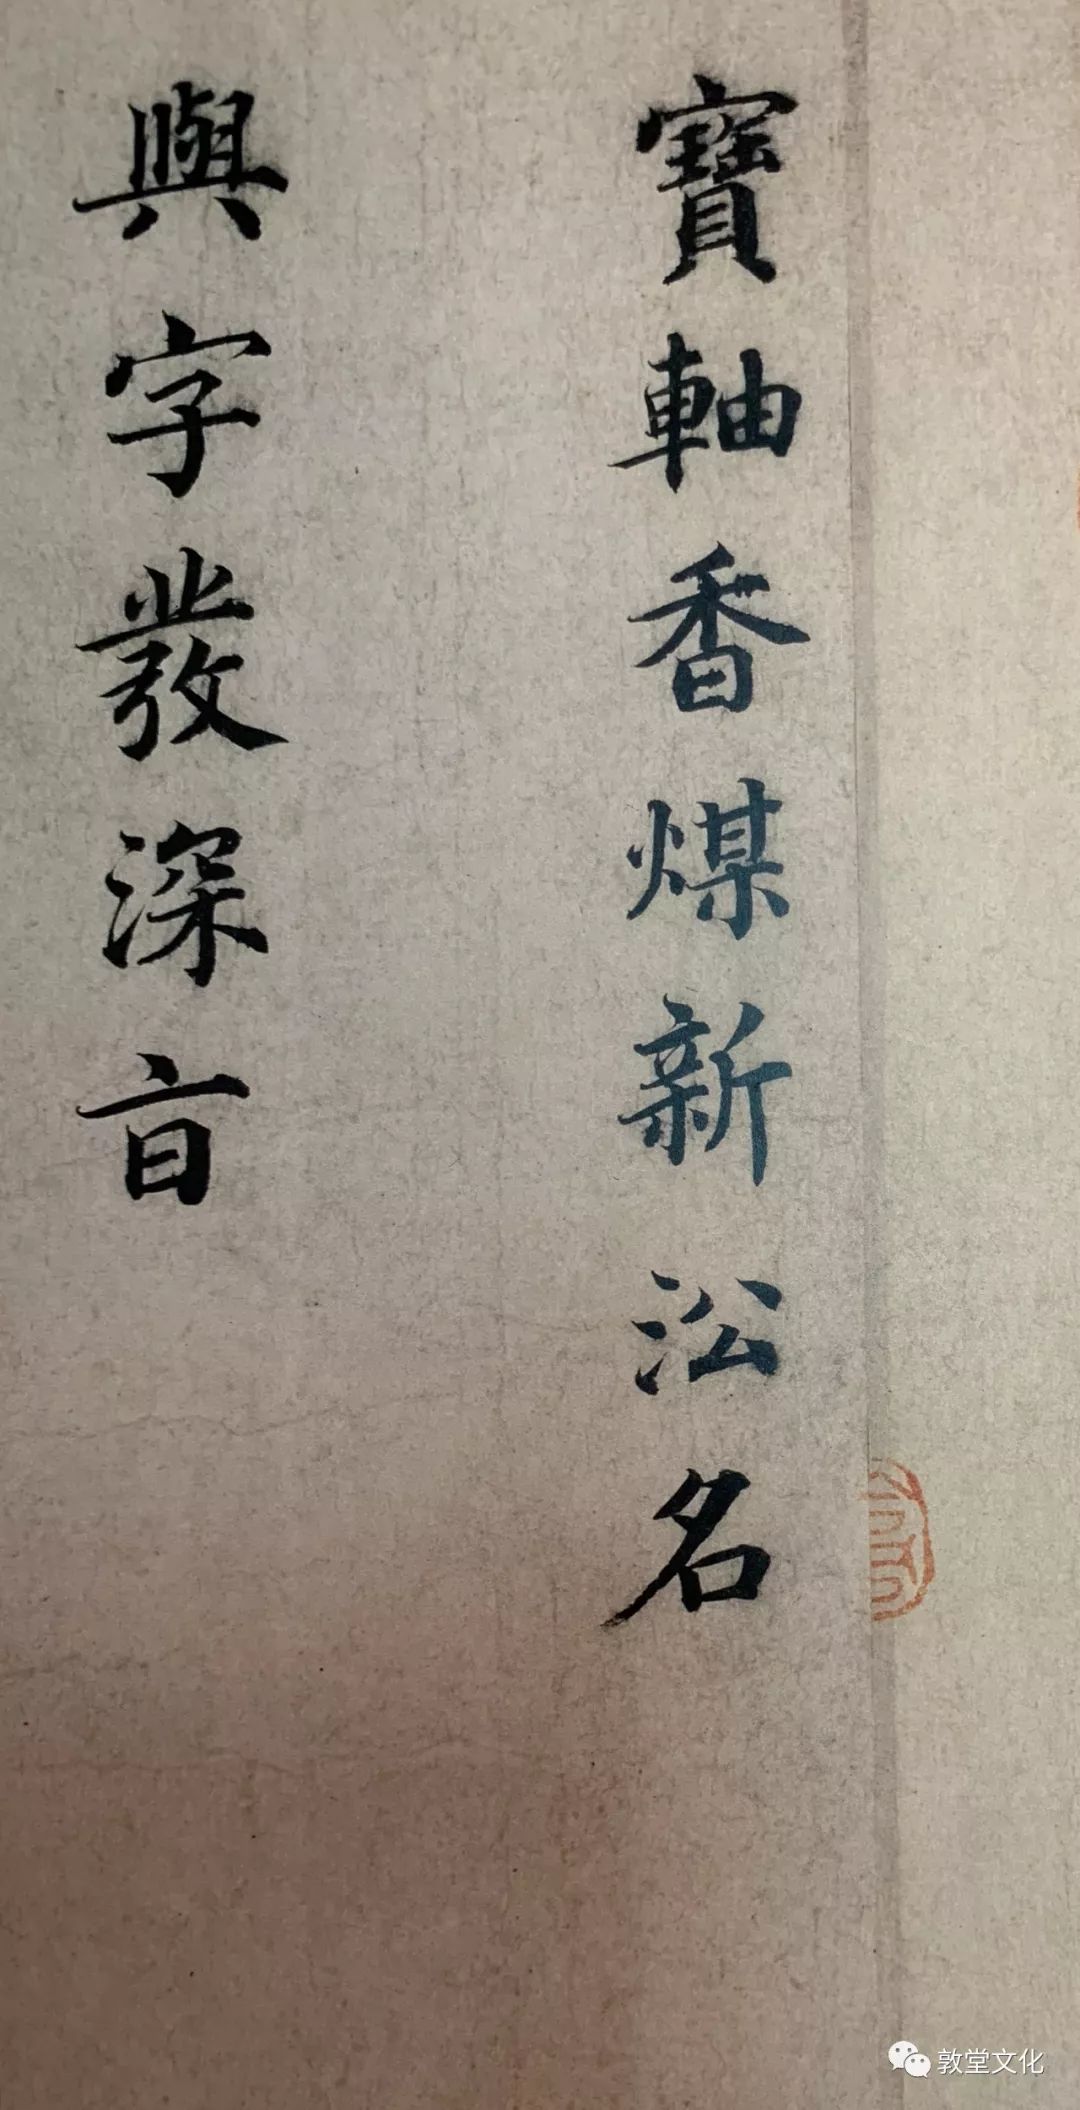 寶軸香煤新㳂名
與字發深㫖
敦堂文化